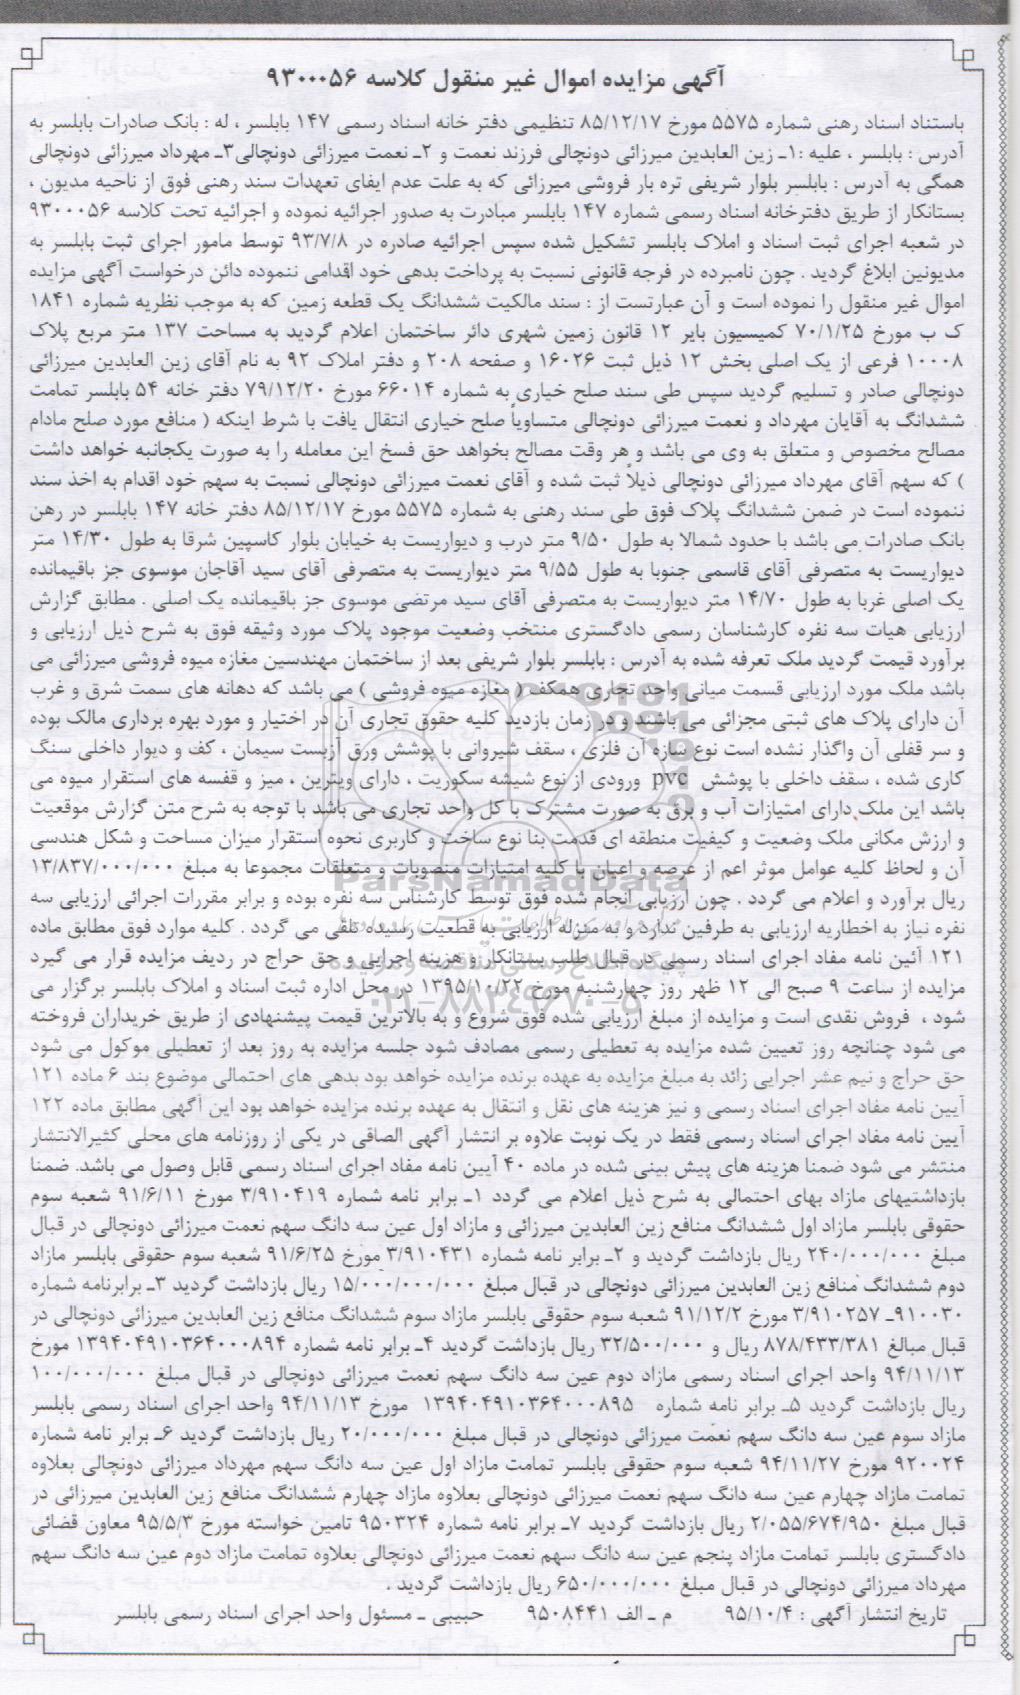 آگهی مزایده اموال غیر منقول کلاسه ۹۳۰۰۰۵۶
باستناد اسناد رهنی شماره ۵۵۷۵ مورخ ۸۵/۱۲/۱۷ تنظیمی دفتر خانه اسناد رسمی ۱۴۷ بابلسر ، له : بانک صادرات بابلسر به
آدرس : بابلسر ، علیه :۱ـ زین العابدین میرزائی دونچالی فرزند نعمت و ۲ـ نعمت میرزائی دونچالی۳ـ مهرداد میرزائی دونچالی
همگی به آدرس : بابلسر بلوار شریفی تره بار فروشی میرزائی که به علت عدم ایفای تعهدات سند رهنی فوق از ناحیه مدیون ،
بستانکار از طریق دفترخانه اسناد رسمی شماره ۱۴۷ بابلسر مبادرت به صدور اجرائیه نموده و اجرائیه تحت کلاسه ۹۳۰۰۰۵۶
در شعبه اجرای ثبت اسناد و املاک بابلسر تشکیل شده سپس اجرائیه صادره در ۹۳/۷/۸ توسط مامور اجرای ثبت بابلسر به
مدیونین ابلاغ گردید . چون نامبرده در فرجه قانونی نسبت به پرداخت بدهی خود اقدامی ننموده دائن درخواست آگهی مزایده
اموال غیر منقول را نموده است و آن عبارتست از : سند مالکیت ششدانگ یک قطعه زمین که به موجب نظریه شماره ۱۸۴۱
ک ب مورخ ۷۰/۱/۲۵ کمیسیون بایر ۱۲ قانون زمین شهری دائر ساختمان اعلام گردید به مساحت ۱۳۷ متر مربع پلاک
۱۰۰۰۸ فرعی از یک اصلی بخش ۱۲ ذیل ثبت ۱۶۰۲۶ و صفحه ۲۰۸ و دفتر املاک ۹۲ به نام آقای زین العابدین میرزائی
دونچالی صادر و تسلیم گردید سپس طی سند صلح خیاری به شماره ۶۶۰۱۴ مورخ ۷۹/۱۲/۲۰ دفتر خانه ۵۴ بابلسر تمامت
ششدانگ به آقایان مهرداد و نعمت میرزائی دونچالی متساویاً صلح خیاری انتقال یافت با شرط اینکه ( منافع مورد صلح مادام
مصالح مخصوص و متعلق به وی می باشد و هر وقت مصالح بخواهد حق فسخ این معامله را به صورت یکجانبه خواهد داشت
) که سهم آقای مهرداد میرزائی دونچالی ذیلاً ثبت شده و آقای نعمت میرزائی دونچالی نسبت به سهم خود اقدام به اخذ سند
ننموده است در ضمن ششدانگ پلاک فوق طی سند رهنی به شماره ۵۵۷۵ مورخ ۸۵/۱۲/۱۷ دفتر خانه ۱۴۷ بابلسر در رهن
بانک صادرات می باشد با حدود شمالا به طول ۹/۵۰ متر درب و دیواریست به خیابان بلوار کاسپین شرقا به طول ۱۴/۳۰ متر
دیواریست به متصرفی آقای قاسمی جنوبا به طول ۹/۵۵ متر دیواریست به متصرفی آقای سید آقاجان موسوی جز باقیمانده
یک اصلی غربا به طول ۱۴/۷۰ متر دیواریست به متصرفی آقای سید مرتضی موسوی جز باقیمانده یک اصلی . مطابق گزارش
ارزیابی هیات سه نفره کارشناسان رسمی دادگستری منتخب وضعیت موجود پلاک مورد وثیقه فوق به شرح ذیل ارزیابی و
برآورد قیمت گردید ملک تعرفه شده به آدرس : بابلسر بلوار شریفی بعد از ساختمان مهندسین مغازه میوه فروشی میرزائی می
باشد ملک مورد ارزیابی قسمت میانی واحد تجاری همکف ( مغازه میوه فروشی ) می باشد که دهانه های سمت شرق و غرب
آن دارای پلاک های ثبتی مجزائی می باشند و در زمان بازدید کلیه حقوق تجاری آن در اختیار و مورد بهره برداری مالک بوده
و سر قفلی آن واگذار نشده است نوع سازه آن فلزی ، سقف شیروانی با پوشش ورق آزبست سیمان ، کف و دیوار داخلی سنگ
کاری شده ، سقف داخلی با پوشش pvc ورودی از نوع شیشه سکوریت ، دارای ویترین ، میز و قفسه های استقرار میوه می
باشد این ملک دارای امتیازات آب و برق به صورت مشترک با کل واحد تجاری می باشد با توجه به شرح متن گزارش موقعیت
و ارزش مکانی ملک وضعیت و کیفیت منطقه ای قدمت بنا نوع ساخت و کاربری نحوه استقرار میزان مساحت و شکل هندسی
آن و لحاظ کلیه عوامل موثر اعم از عرصه و اعیان با کلیه امتیازات منصوبات و متعلقات مجموعا به مبلغ ۱۳/۸۳۷/۰۰۰/۰۰۰
ریال برآورد و اعلام می گردد . چون ارزیابی انجام شده فوق توسط کارشناس سه نفره بوده و برابر مقررات اجرائی ارزیابی سه
نفره نیاز به اخطاریه ارزیابی به طرفین ندارد و به منزله ارزیابی به قطعیت رسیده تلقی می گردد . کلیه موارد فوق مطابق ماده
۱۲۱ آئین نامه مفاد اجرای اسناد رسمی در قبال طلب بستانکار و هزینه اجرایی و حق حراج در ردیف مزایده قرار می گیرد
مزایده از ساعت ۹ صبح الی ۱۲ ظهر روز چهارشنبه مورخ ۱۳۹۵/۱۰/۲۲ در محل اداره ثبت اسناد و املاک بابلسر برگزار می
شود ، فروش نقدی است و مزایده از مبلغ ارزیابی شده فوق شروع و به بالاترین قیمت پیشنهادی از طریق خریداران فروخته
می شود چنانچه روز تعیین شده مزایده به تعطیلی رسمی مصادف شود جلسه مزایده به روز بعد از تعطیلی موکول می شود
حق حراج و نیم عشر اجرایی زائد به مبلغ مزایده به عهده برنده مزایده خواهد بود بدهی های احتمالی موضوع بند ۶ ماده ۱۲۱
آیین نامه مفاد اجرای اسناد رسمی و نیز هزینه های نقل و انتقال به عهده برنده مزایده خواهد بود این آگهی مطابق ماده ۱۲۲
آیین نامه مفاد اجرای اسناد رسمی فقط در یک نوبت علاوه بر انتشار آگهی الصاقی در یکی از روزنامه های محلی کثیرالانتشار
منتشر می شود ضمنا هزینه های پیش بینی شده در ماده ۴۰ آیین نامه مفاد اجرای اسناد رسمی قابل وصول می باشد. ضمنا
بازداشتیهای مازاد بهای احتمالی به شرح ذیل اعلام می گردد ۱ـ برابر نامه شماره ۳/۹۱۰۴۱۹ مورخ ۹۱/۶/۱۱ شعبه سوم
حقوقی بابلسر مازاد اول ششدانگ منافع زین العابدین میرزائی و مازاد اول عین سه دانگ سهم نعمت میرزائی دونچالی در قبال
مبلغ ۲۴۰/۰۰۰/۰۰۰ ریال بازداشت گردید و ۲ـ برابر نامه شماره ۳/۹۱۰۴۳۱ مورخ ۹۱/۶/۲۵ شعبه سوم حقوقی بابلسر مازاد
دوم ششدانگ منافع زین العابدین میرزائی دونچالی در قبال مبلغ ۱۵/۰۰۰/۰۰۰/۰۰۰ ریال بازداشت گردید ۳ـ برابرنامه شماره
۹۱۰۰۳۰ـ ۳/۹۱۰۲۵۷ مورخ ۹۱/۱۲/۲ شعبه سوم حقوقی بابلسر مازاد سوم ششدانگ منافع زین العابدین میرزائی دونچالی در
قبال مبالغ ۸۷۸/۴۳۳/۳۸۱ ریال و ۳۲/۵۰۰/۰۰۰ ریال بازداشت گردید ۴ـ برابر نامه شماره ۱۳۹۴۰۴۹۱۰۳۶۴۰۰۰۸۹۴ مورخ
۹۴/۱۱/۱۳ واحد اجرای اسناد رسمی مازاد دوم عین سه دانگ سهم نعمت میرزائی دونچالی در قبال مبلغ ۱۰۰/۰۰۰/۰۰۰
ریال بازداشت گردید ۵ـ برابر نامه شماره ۱۳۹۴۰۴۹۱۰۳۶۴۰۰۰۸۹۵ مورخ ۹۴/۱۱/۱۳ واحد اجرای اسناد رسمی بابلسر
مازاد سوم عین سه دانگ سهم نعمت میرزائی دونچالی در قبال مبلغ ۲۰/۰۰۰/۰۰۰ ریال بازداشت گردید ۶ـ برابر نامه شماره
۹۲۰۰۲۴ مورخ ۹۴/۱۱/۲۷ شعبه سوم حقوقی بابلسر تمامت مازاد اول عین سه دانگ سهم مهرداد میرزائی دونچالی بعلاوه
تمامت مازاد چهارم عین سه دانگ سهم نعمت میرزائی دونچالی بعلاوه مازاد چهارم ششدانگ منافع زین العابدین میرزائی در
قبال مبلغ ۲/۰۵۵/۶۷۴/۹۵۰ ریال بازداشت گردید ۷ـ برابر نامه شماره ۹۵۰۳۲۴ تامین خواسته مورخ ۹۵/۵/۳ معاون قضائی
دادگستری بابلسر تمامت مازاد پنجم عین سه دانگ سهم نعمت میرزائی دونچالی بعلاوه تمامت مازاد دوم عین سه دانگ سهم
مهرداد میرزائی دونچالی در قبال مبلغ ۶۵۰/۰۰۰/۰۰۰ ریال بازداشت گردید .
تاریخ انتشار آگهی : ۹۵/۱۰/۴ م ـ الف ۹۵۰۸۴۴۱ حبیبی ـ مسئول واحد اجرای اسناد رسمی بابلسر
ParsNamadData
۰۲۱-۸۸۳۴۹۶۷۰-۵